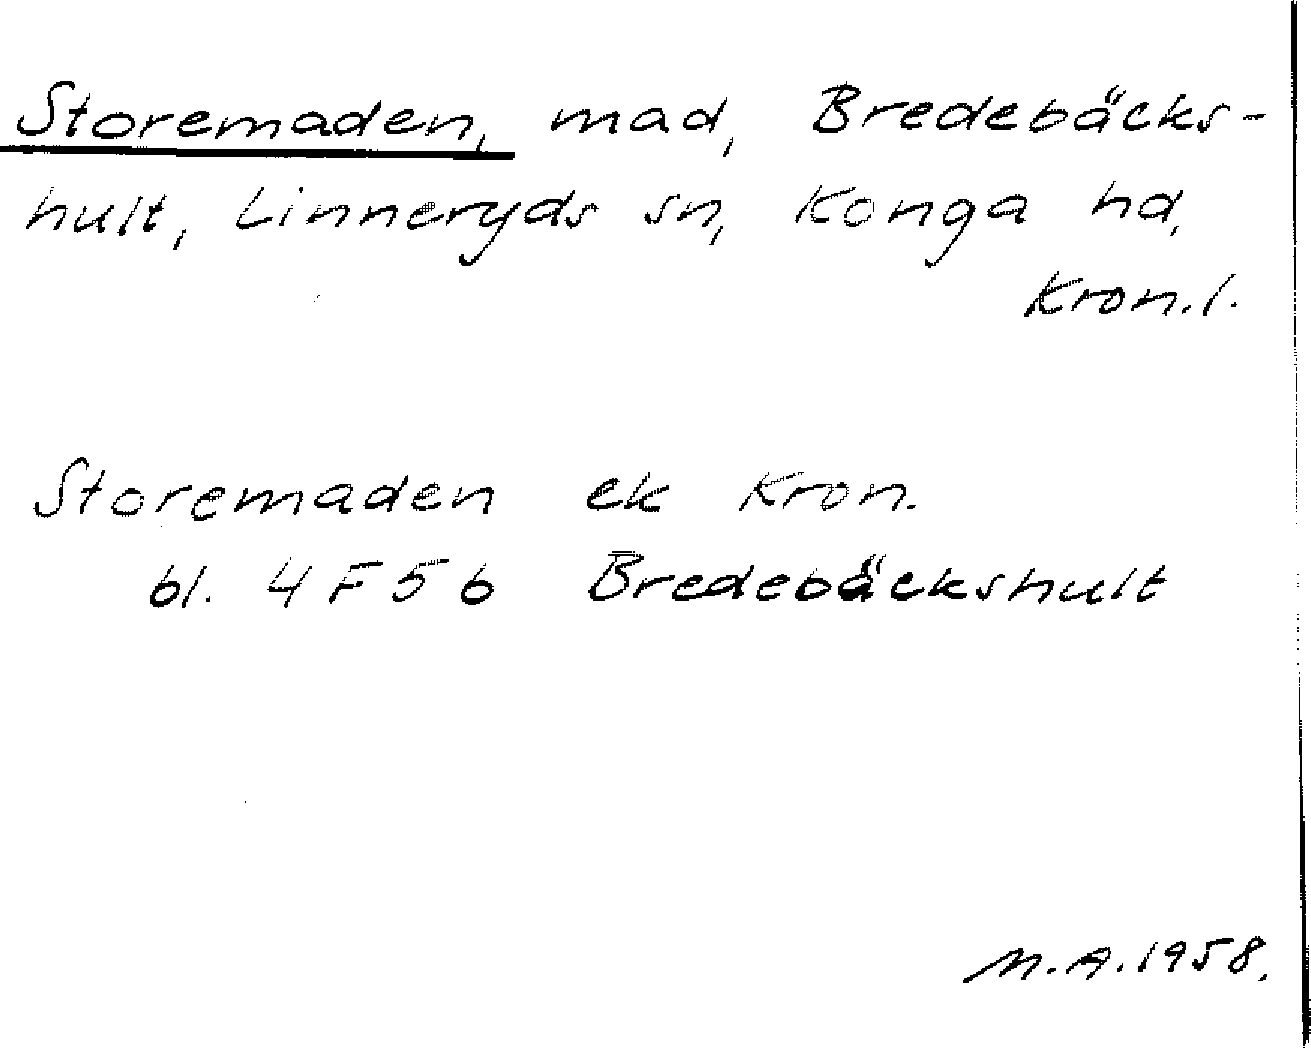 Storemaden, mad, Bredebäcks-
hult, Linneryds sn, Konga hd,
Kron.l.
Storemaden ek Kron.
bl. 4 F 5 b Bredebäckshult
M.A. 1958.